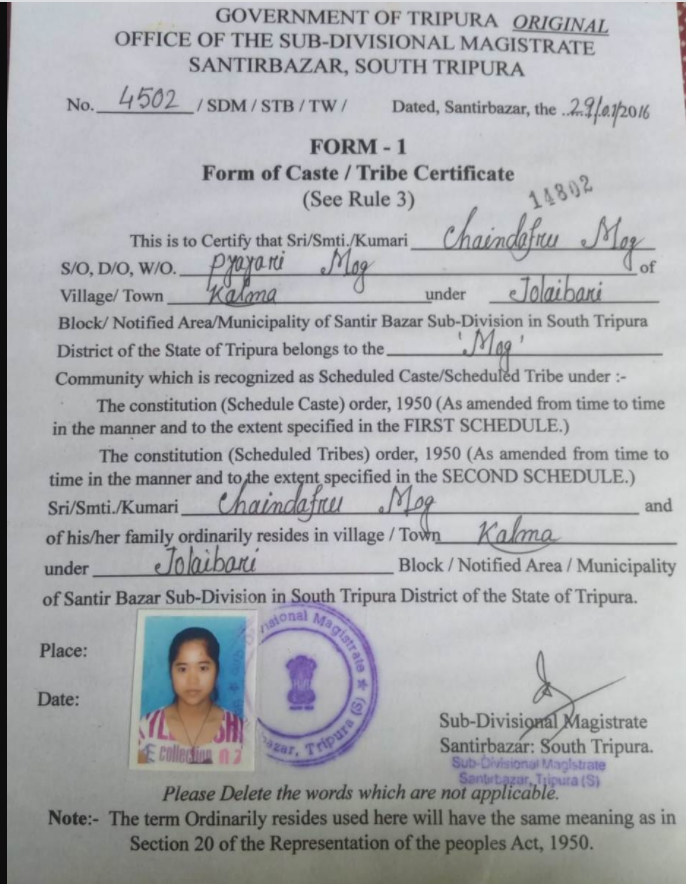 GOVERNMENT OF TRIPURA ORIGINAL
OFFICE OF THE SUB-DIVISIONAL MAGISTRATE
SANTIRBAZAR, SOUTH TRIPURA
No. 4502 / SDM / STB / TW / Dated, Santirbazar, the .. 29/01/2016
FORM - 1
Form of Caste / Tribe Certificate
(See Rule 3)
14802
This is to Certify that Sri/Smti./Kumari Chaindafru Mog
S/O, D/O, W/O. Pyajari Mog of
Village/ Town Kalma under Jolaibari
Block/ Notified Area/Municipality of Santir Bazar Sub-Division in South Tripura
District of the State of Tripura belongs to the 'Mog'
Community which is recognized as Scheduled Caste/Scheduled Tribe under :-
The constitution (Schedule Caste) order, 1950 (As amended from time to time
in the manner and to the extent specified in the FIRST SCHEDULE.)
The constitution (Scheduled Tribes) order, 1950 (As amended from time to
time in the manner and to the extent specified in the SECOND SCHEDULE.)
Sri/Smti./Kumari Chaindafru Mog and
of his/her family ordinarily resides in village / Town Kalma
under Jolaibari Block / Notified Area / Municipality
of Santir Bazar Sub-Division in South Tripura District of the State of Tripura.
Place:
Date:
collection 07
Divisional Magistrate ★
bazar, Tripura (S)
Sub-Divisional Magistrate
Santirbazar: South Tripura.
Sub-Divisional Magistrate
Santirbazar, Tripura (S)
Please Delete the words which are not applicable.
Note:- The term Ordinarily resides used here will have the same meaning as in
Section 20 of the Representation of the peoples Act, 1950.